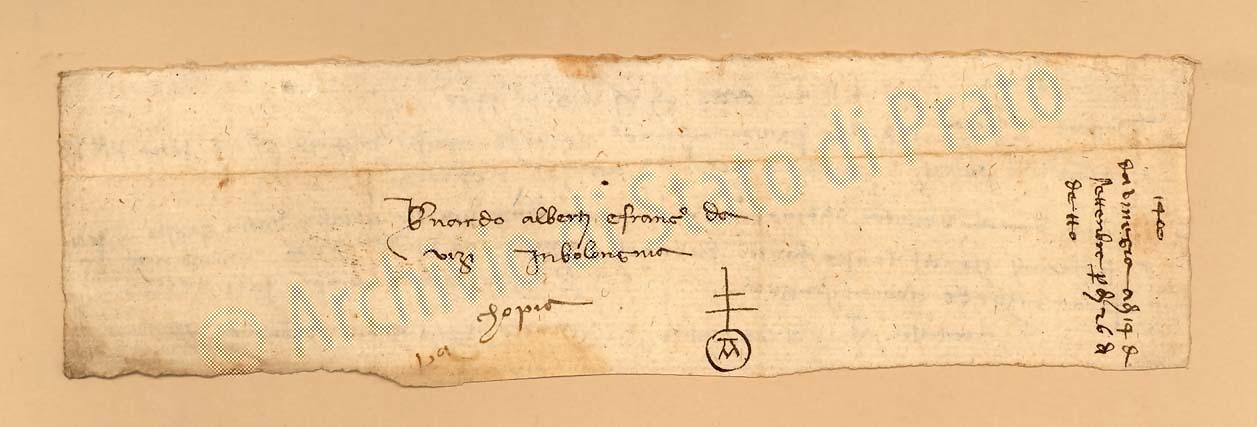 Bernardo alberti e franc° da
vizi in bolongnia
chopia
1400
da vinegia a dì 14 di
settenbre p dì 26 di
detto
© Archivio di Stato di Prato